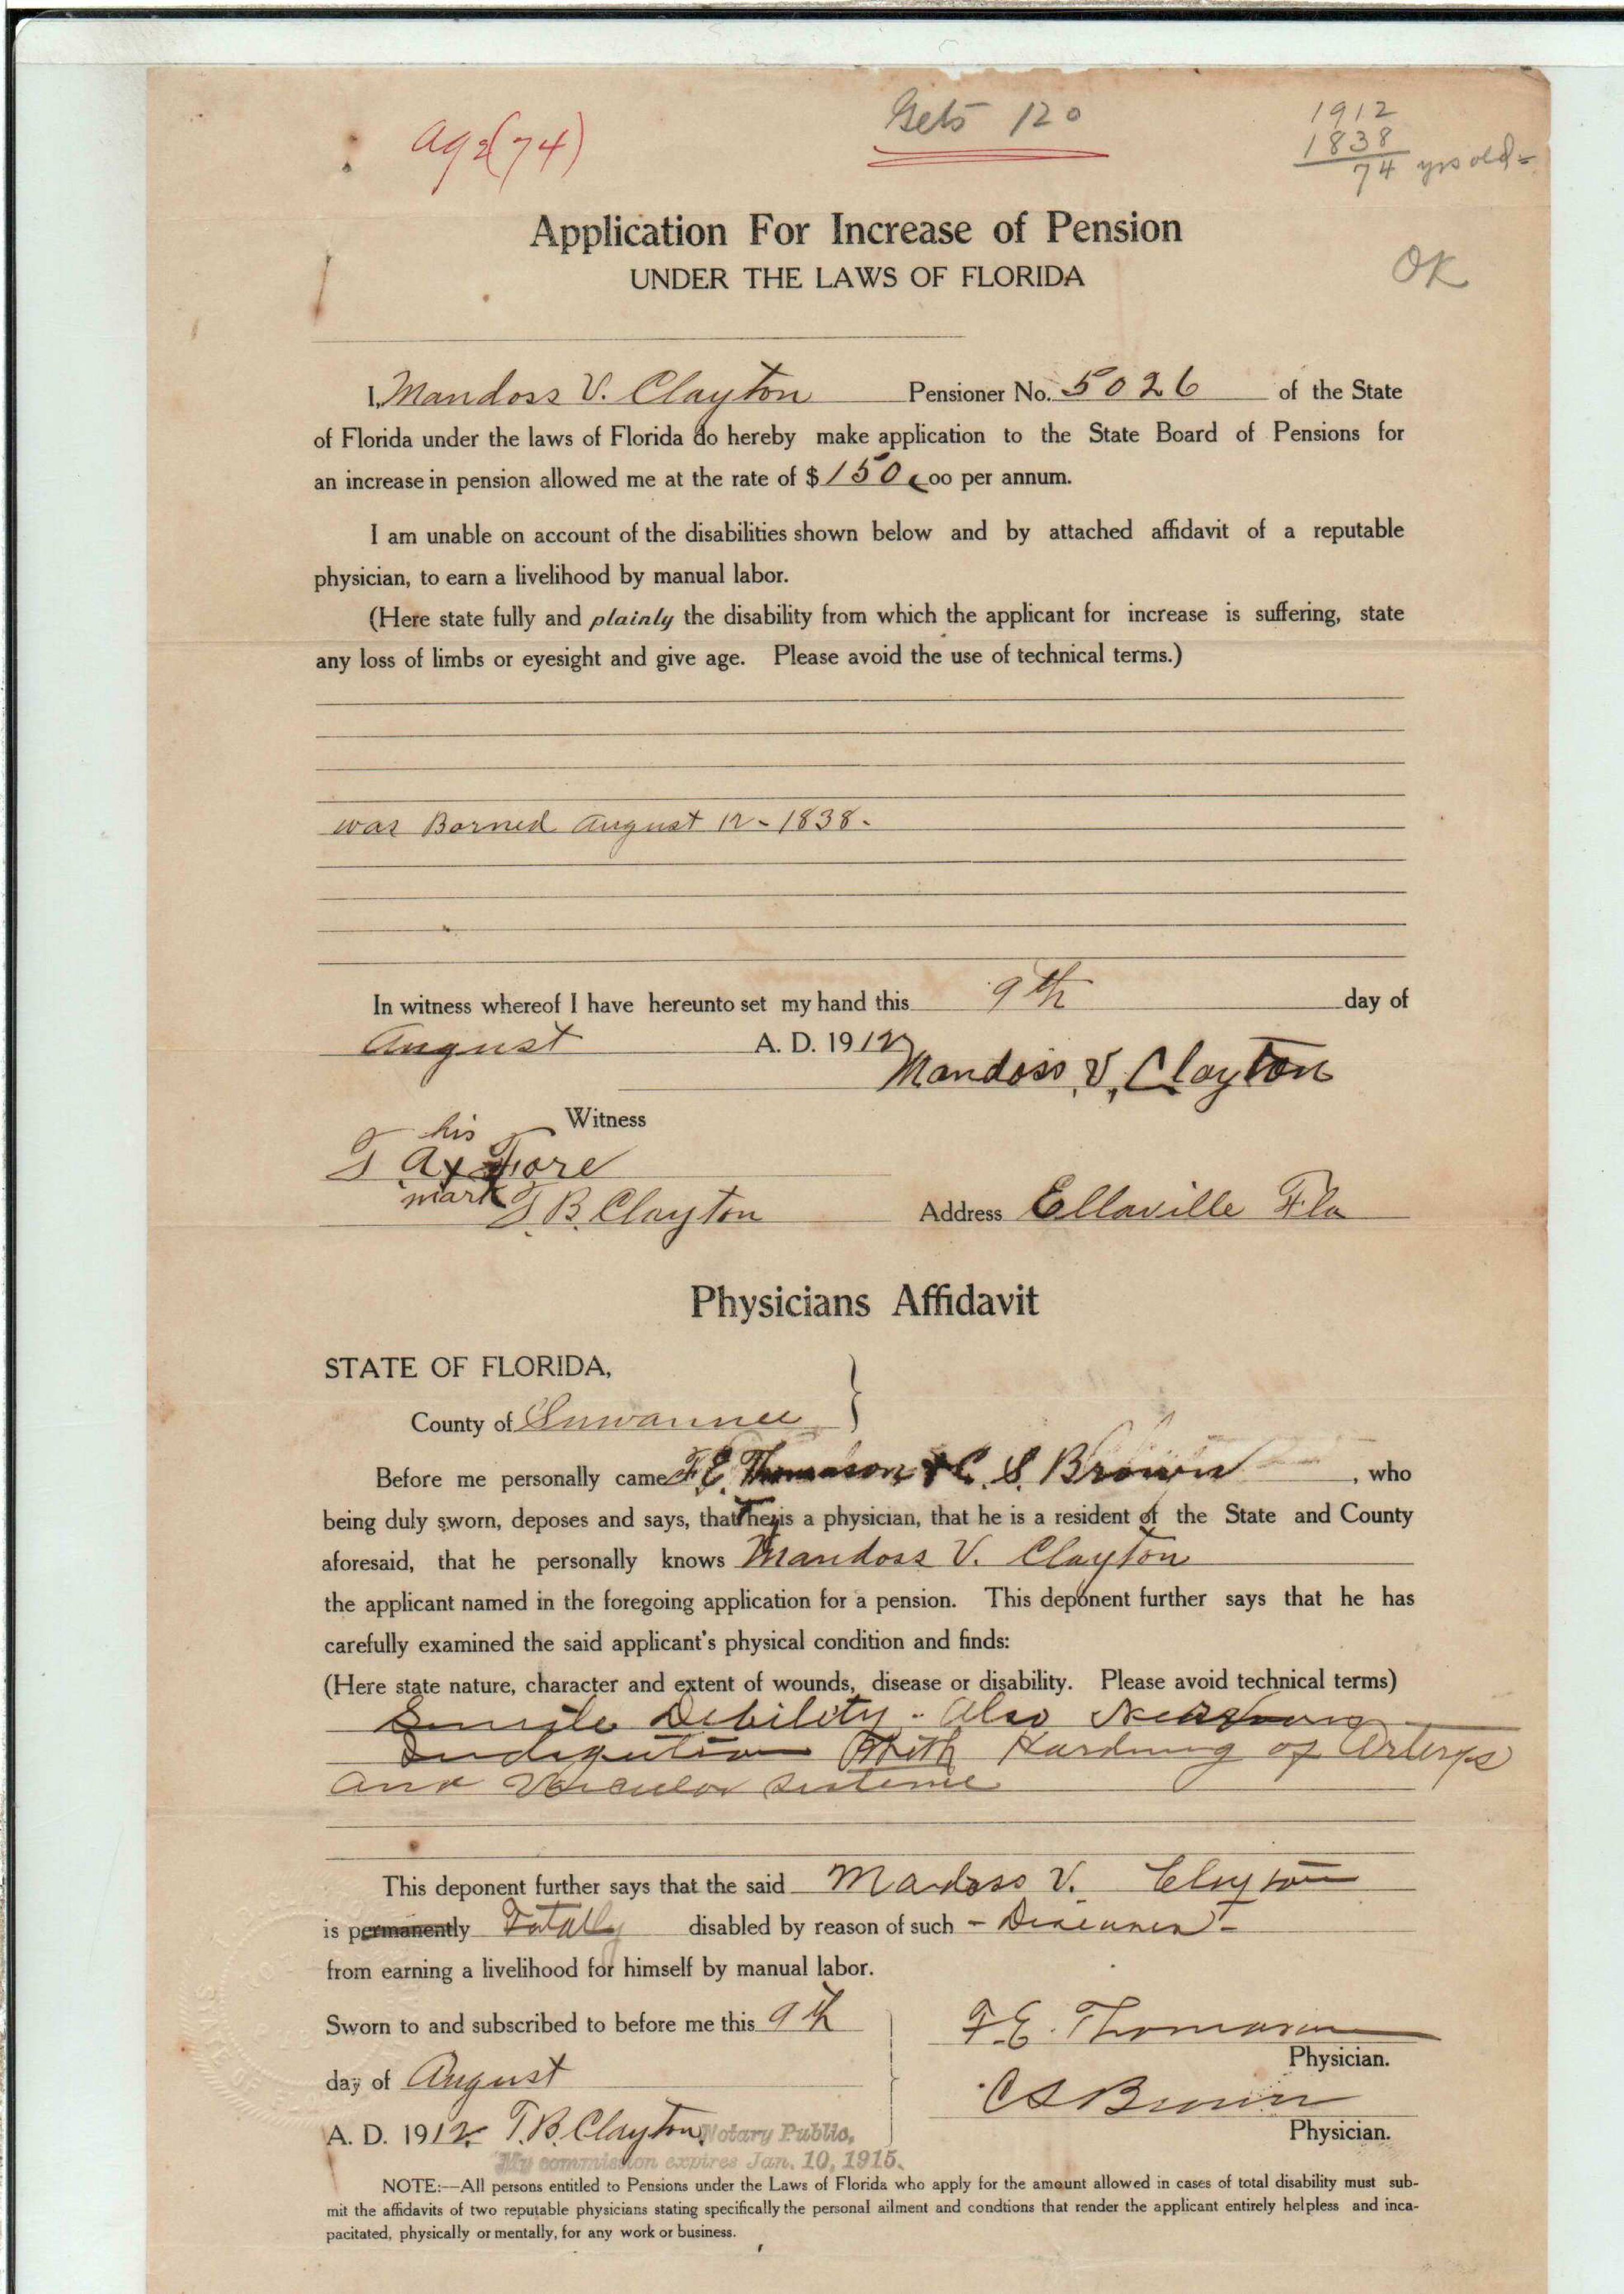 Age (74)
Gets 120
1912
1838
74 yrs old =
Application For Increase of Pension
UNDER THE LAWS OF FLORIDA
OK
I, Mandoss V. Clayton Pensioner No. 5026 of the State
of Florida under the laws of Florida do hereby make application to the State Board of Pensions for
an increase in pension allowed me at the rate of $150.00 per annum.
I am unable on account of the disabilities shown below and by attached affidavit of a reputable
physician, to earn a livelihood by manual labor.
(Here state fully and plainly the disability from which the applicant for increase is suffering, state
any loss of limbs or eyesight and give age. Please avoid the use of technical terms.)
was Borned August 12 - 1838 -
In witness whereof I have hereunto set my hand this 9th day of
August A. D. 1912
Mandoss V. Clayton
Witness
his
mark
T. B. Clayton Address Ellaville Fla
Physicians Affidavit
STATE OF FLORIDA, }
County of Suwannee
Before me personally came F. E. Thomason & C. S. Brown, who
being duly sworn, deposes and says, that he is a physician, that he is a resident of the State and County
aforesaid, that he personally knows Mandoss V. Clayton
the applicant named in the foregoing application for a pension. This deponent further says that he has
carefully examined the said applicant's physical condition and finds:
(Here state nature, character and extent of wounds, disease or disability. Please avoid technical terms)
Senile Debility - also Nervous
Indigestion With Hardning of Arterys
and Vascular
This deponent further says that the said Madoss V. Clayton
is permanently Totally disabled by reason of such -
from earning a livelihood for himself by manual labor.
Sworn to and subscribed to before me this 9th
day of August
A. D. 1912. T. B. Clayton, Notary Public,
My commission expires Jan. 10, 1915.
F. E. Thomason
Physician.
C S Brown
Physician.
NOTE:—All persons entitled to Pensions under the Laws of Florida who apply for the amount allowed in cases of total disability must sub-
mit the affidavits of two reputable physicians stating specifically the personal ailment and condtions that render the applicant entirely helpless and inca-
pacitated, physically or mentally, for any work or business.